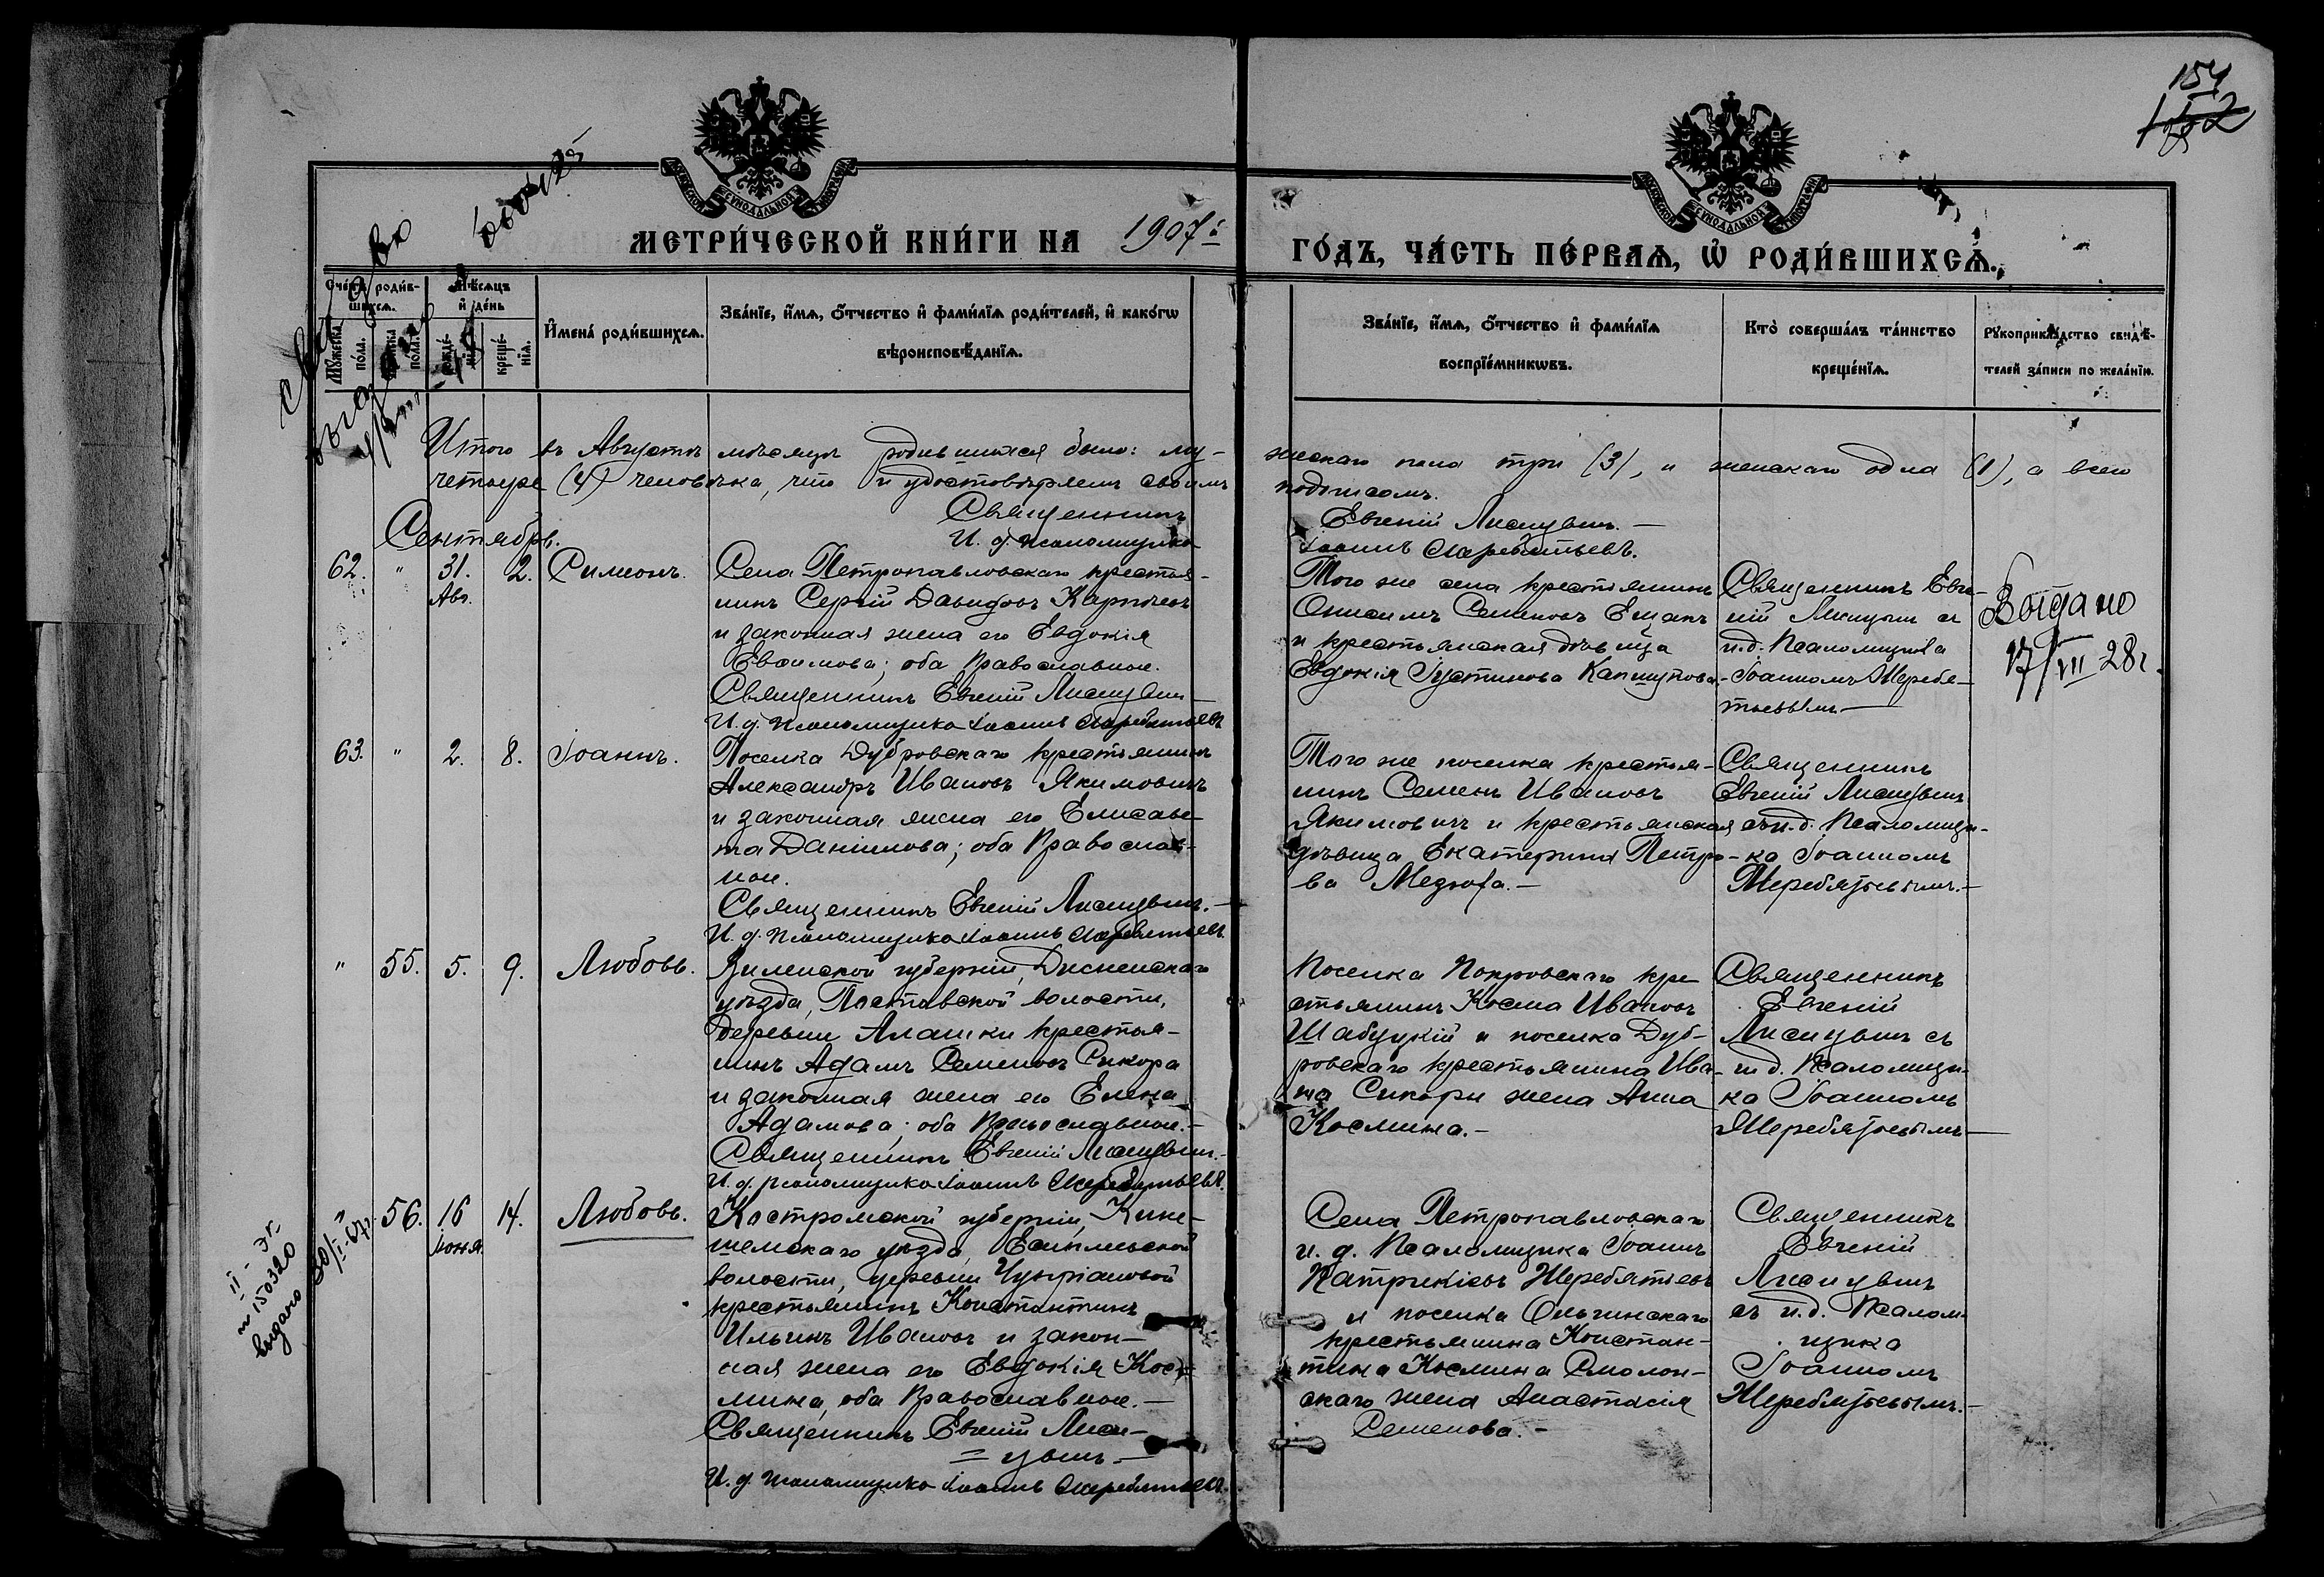 154
152
МОСКОВСКОЙ СѴНОДАЛЬНОЙ ТИПОГРАФІИ
МОСКОВСКОЙ СѴНОДАЛЬНОЙ ТИПОГРАФІИ
МЕТРИ́ЧЕСКОЙ КНИ́ГИ НА 1907й
ГО́ДЪ, ЧА́СТЬ ПЕ́РВАѦ, Ѡ҆ РОДИ́ВШИХСѦ.
Сче́тъ роди́в-
шихсѧ.
Мꙋ́жеска
по́ла.
Же́нска
по́ла.
Мѣ́сѧцъ
и҆ де́нь
рожде́-
нїѧ.
креще́-
нїѧ.
И҆мена̀ роди́вшихсѧ.
Зва́нїе, и҆́мѧ, ѻ҆́тчество и҆ фами́лїѧ роди́телей, и҆ како́гѡ
вѣроисповѣ́данїѧ.
Зва́нїе, и҆́мѧ, ѻ҆́тчество и҆ фами́лїѧ
воспрїе́мникѡвъ.
Кто̀ соверша́лъ та́инство
креще́нїѧ.
Рꙋкоприкла́дство свидѣ́-
телей за́писи по жела́нїю.
Итого въ Августѣ мѣсяцѣ родившихся было: му-
жескаго пола три (3), и женскаго одна (1), а всего
четыре (4) человѣка, что и удостовѣряемъ своимъ
подписомъ.
Священникъ
Евгеній Лисицынъ.—
И. д. псаломщика
Іоаннъ Жеребятьевъ.
Сентябрь.
62. " 31. Авг. 2. Симеонъ.
Села Петропавловскаго крестья-
нинъ Сергій Давидовъ Карпычевъ
и законная жена его Евдокія
Евфимова; оба Православные.
Священникъ Евгеній Лисицынъ
И. д. псаломщика Іоаннъ Жеребятьевъ
Того же села крестьянинъ
Онисимъ Семеновъ Ещенко
и крестьянская дѣвица
Евдокія Іустинова Капшукова.
Священникъ Евге-
ній Лисицынъ съ
и.д. Псаломщика
Іоанномъ Жеребя-
тьевымъ—
Выдано
17/VII 28г.
63. " 2. 8. Іоаннъ.
Поселка Дубровскаго крестьянинъ
Александръ Ивановъ Якимовичъ
и законная жена его Елисаве-
та Даніилова; оба Православ-
ные.
Священникъ Евгеній Лисицынъ.—
И. д. псаломщика Іоаннъ Жеребятьевъ.
Того же поселка крестья-
нинъ Семенъ Ивановъ
Якимовичъ и крестьянская
дѣвица Екатерина Петро-
ва Медюха.—
Священникъ
Евгеній Лисицынъ
съ и.д. Псаломщи-
ка Іоанномъ
Жеребятьевымъ.—
" 55. 5. 9. Любовь.
Виленской губерніи, Дисненскаго
уѣзда, Поставской волости,
деревни Алашки крестья-
нинъ Адамъ Семеновъ Сикора
и законная жена его Елена
Адамова; оба Православные.—
Священникъ Евгеній Лисицынъ.—
И. д. псаломщика Іоаннъ Жеребятьевъ.
Поселка Покровскаго кре
стьянинъ Косма Ивановъ
Шабуцкій и поселка Дуб-
ровскаго крестьянина Ива-
на Сикоры жена Анна
Космина.—
Священникъ
Евгеній
Лисицынъ съ
и.д. Псаломщи-
ка Іоанномъ
Жеребятьевымъ—
56. 16 Іюня. 14. Любовь.
Костромской губерніи, Кине-
шемскаго уѣзда,
волости, деревни
крестьянинъ Константинъ
Ильинъ Ивановъ и закон-
ная жена его Евдокія Кось-
мина, оба Православные.—
Священникъ Евгеній Лиси-
=цынъ—
И. д. псаломщика Іоаннъ Жеребятьевъ.
Села Петропавловскаго
и. д. Псаломщика Іоаннъ
Патрикіевъ Жеребятьевъ
и поселка Ольгинскаго
крестьянина Констан-
тина Космина Смолон-
скаго жена Анастасія
Семенова.—
Священникъ
Евгеній
Лисицынъ
съ и.д. Псалом-
щика
Іоанномъ
Жеребятьевымъ.—
№ 150320
выдано 30/I-67г.